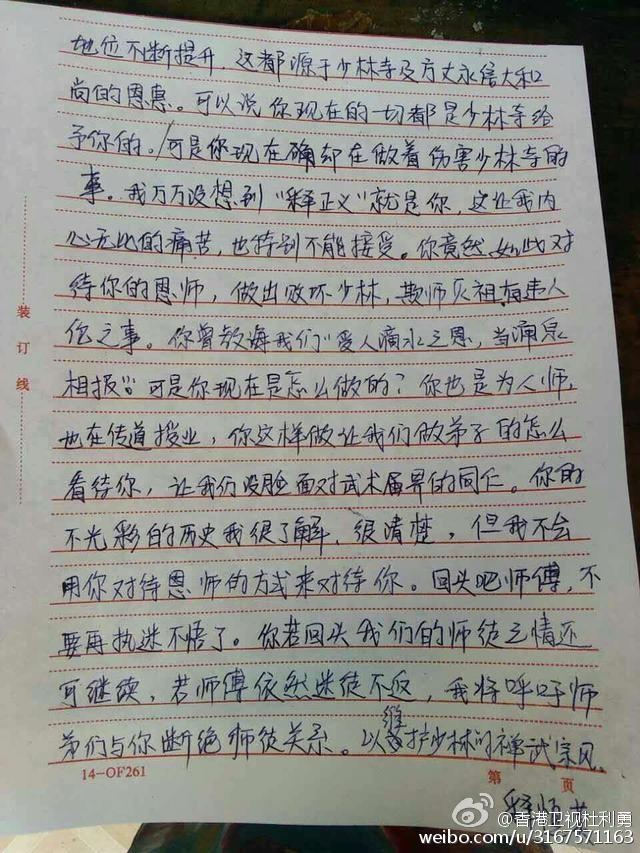 地位不断提升,这都源于少林寺及方丈永信大和
尚的恩惠。可以说你现在的一切都是少林寺给
予你的。可是你现在确却在做着伤害少林寺的
事。我万万没想到“释正义”就是你,这让我内
心无比的痛苦,也特别不能接受。你竟然如此对
待你的恩师,做出败坏少林,欺师灭祖有违人
伦之事。你曾教诲我们“受人滴水之恩,当涌泉
相报”!可是你现在是怎么做的?你也是为人师,
也在传道授业,你这样做让我们做弟子的怎么
看待你,让我们没脸面对武术届界的同仁。你的
不光彩的历史我很了解,很清楚,但我不会
用你对待恩师的方式来对待你。回头吧师傅,不
要再执迷不悟了。你若回头我们的师徒之情还
可继续,若师傅依然迷徒不返,我将呼吁师
弟们与你断绝师徒关系。以维护少林的禅武宗风。
装订线
14-OF261
第 页
@香港卫视杜利勇
weibo.com/u/3167571163